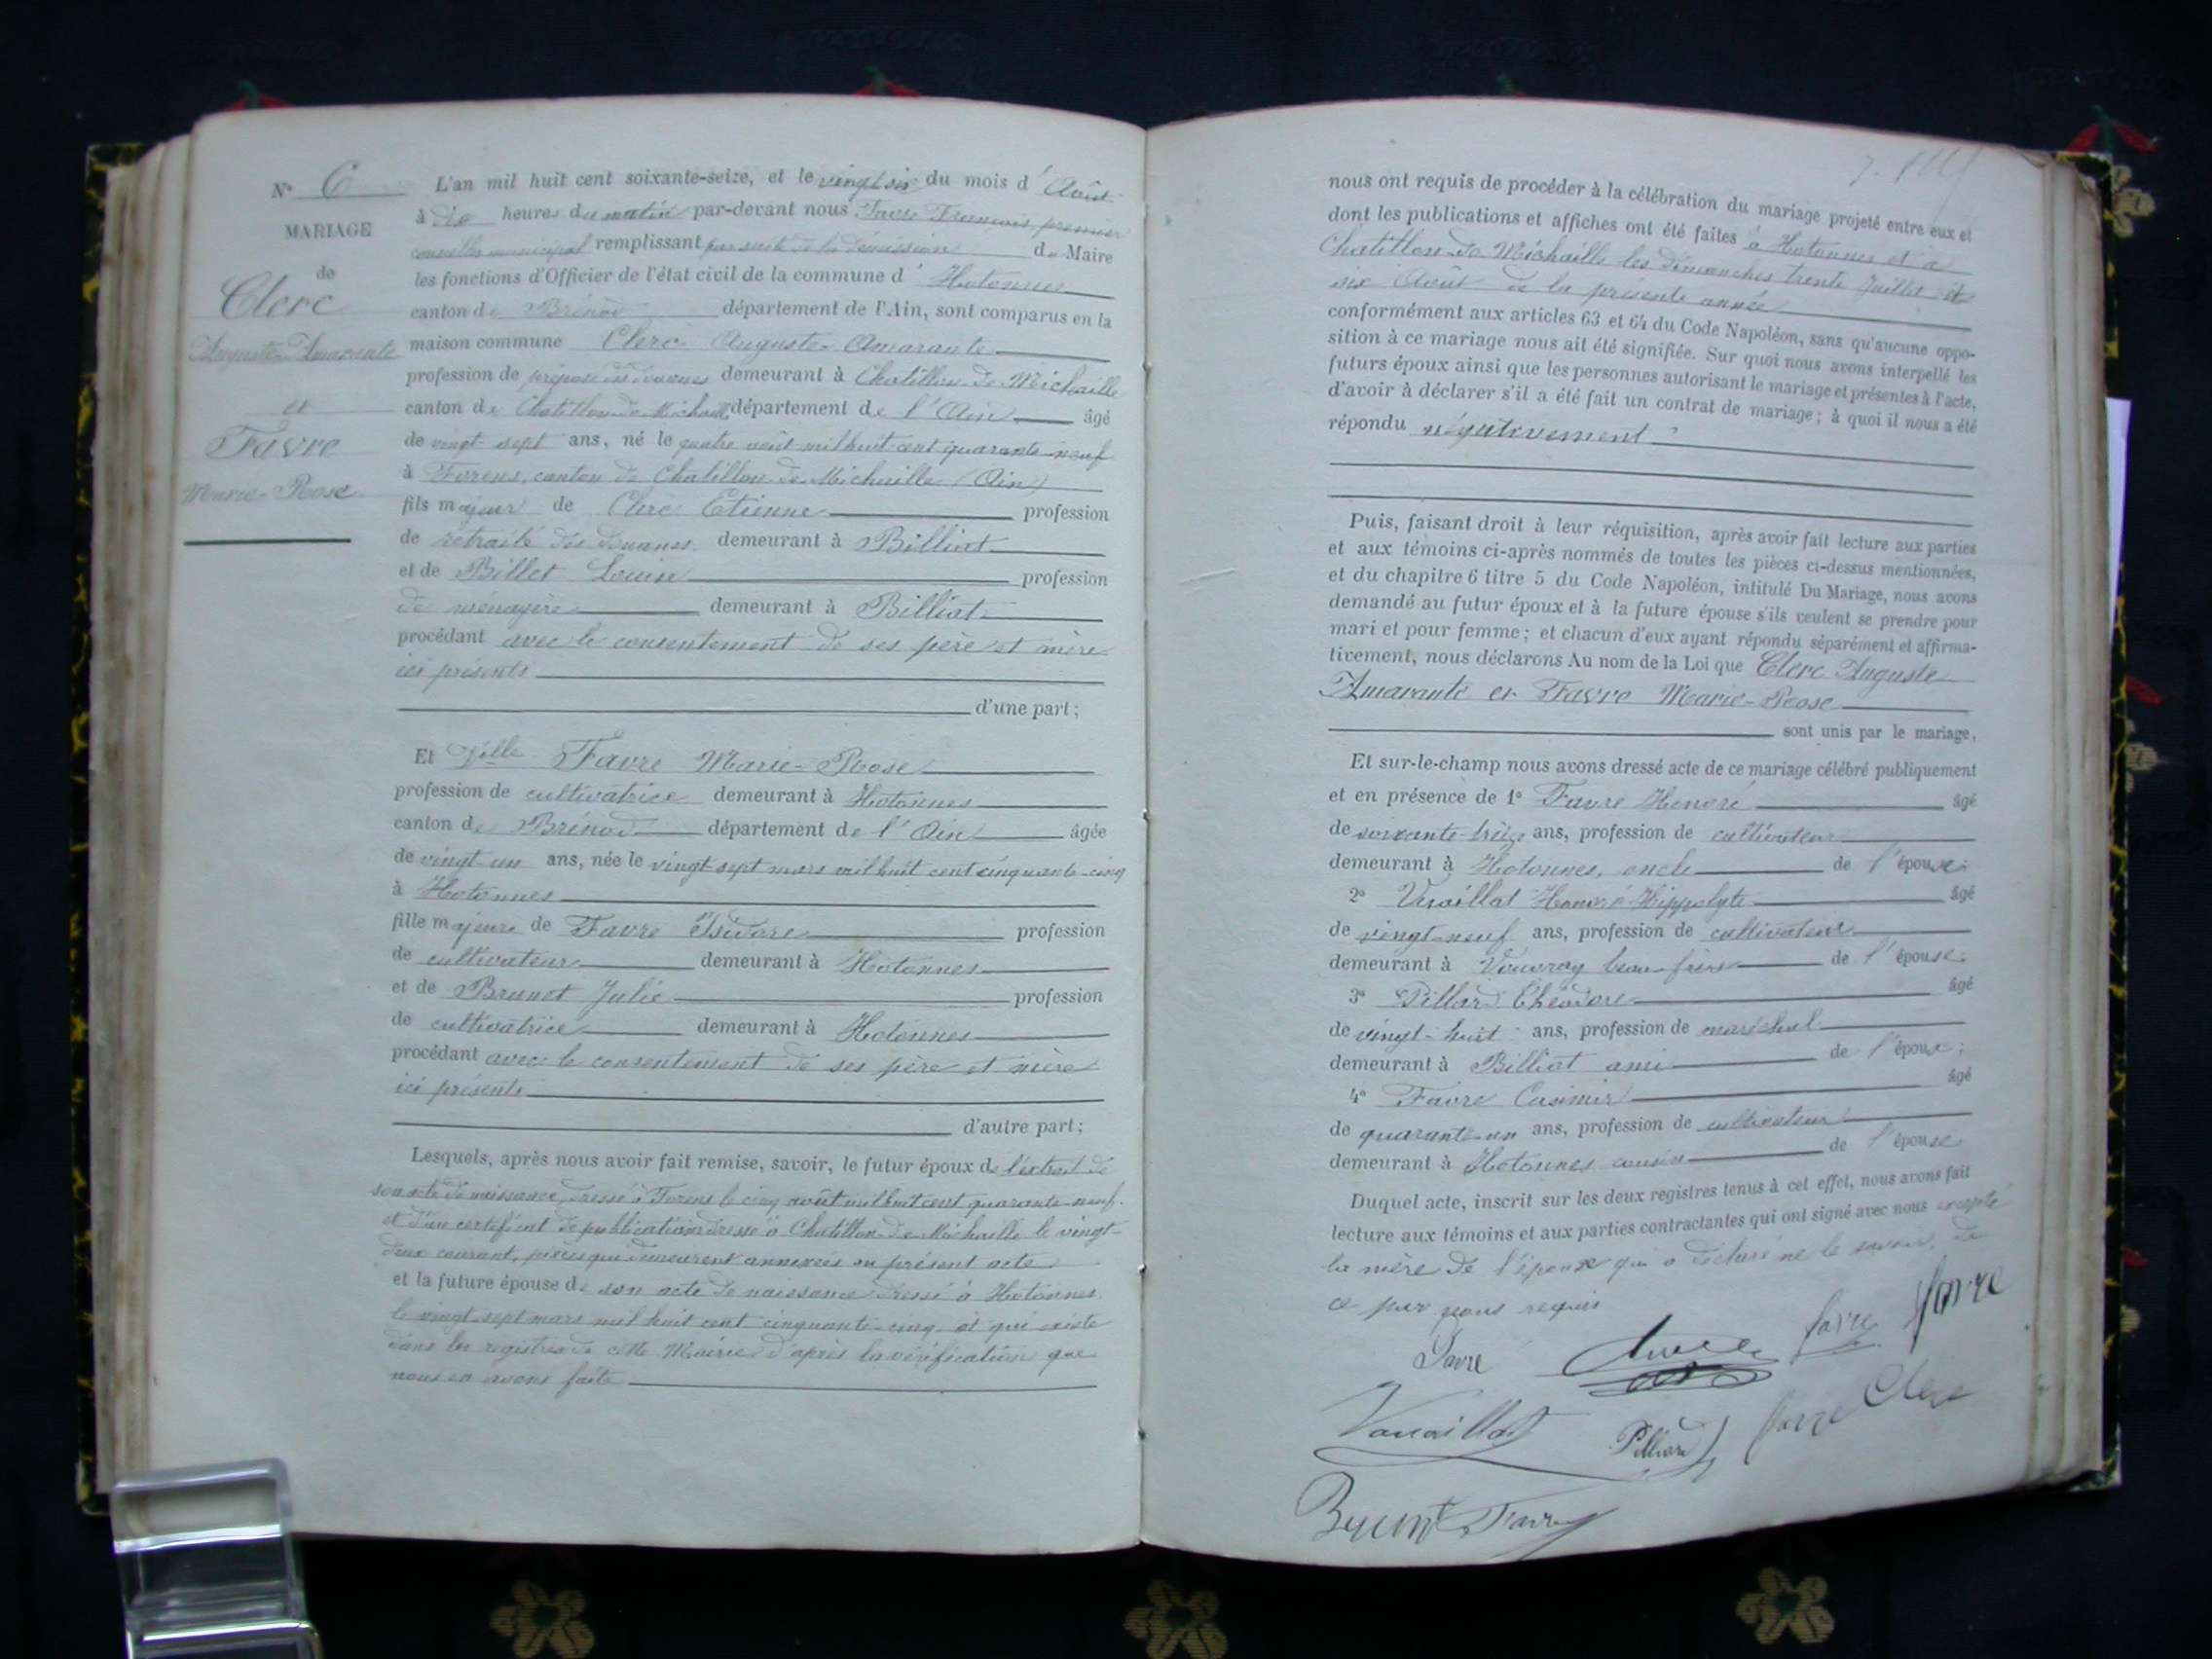 N° 6
MARIAGE
de
Clerc
Auguste Amarante
et
Favre
Marie-Rose
L'an mil huit cent soixante-seize, et le vingt six du mois d'Août
à dix heures du matin par-devant nous Favre François premier
conseiller municipal remplissant par suite de la démission du Maire
les fonctions d'Officier de l'état civil de la commune d'Hotonnes
canton de Brénod département de l'Ain, sont comparus en la
maison commune Clerc Auguste Amarante
profession de préposé des douanes demeurant à Chatillon-de-Michaille
canton de Chatillon-de-Michaille département de l'Ain âgé
de vingt-sept ans, né le quatre août mil huit cent quarante-neuf
à Forens, canton de Chatillon-de-Michaille (Ain)
fils majeur de Clerc Etienne profession
de retraité des douanes demeurant à Billiat
et de Billet Louise profession
de ménagère demeurant à Billiat
procédant avec le consentement de ses père et mère
ici présents
d'une part;
Et Dlle Favre Marie-Rose
profession de cultivatrice demeurant à Hotonnes
canton de Brénod département de l'Ain âgée
de vingt-un ans, née le vingt-sept mars mil huit cent cinquante-cinq
à Hotonnes
fille majeure de Favre Isidore profession
de cultivateur demeurant à Hotonnes
et de Brunet Julie profession
de cultivatrice demeurant à Hotonnes
procédant avec le consentement de ses père et mère
ici présents
d'autre part;
Lesquels, après nous avoir fait remise, savoir, le futur époux de l'extrait de
son acte de naissance dressé à Forens le cinq août mil huit cent quarante-neuf
et d'un certificat de publication dressé à Chatillon-de-Michaille le vingt-
deux courant, pièces qui demeurent annexées au présent acte
et la future épouse de son acte de naissance dressé à Hotonnes
le vingt-sept mars mil huit cent cinquante-cinq et qui existe
dans les registres de cette Mairie d'après la vérification que
nous en avons faite
nous ont requis de procéder à la célébration du mariage projeté entre eux et
dont les publications et affiches ont été faites à Hotonnes et à
Chatillon-de-Michaille les dimanches trente Juillet et
six Août de la présente année
conformément aux articles 63 et 64 du Code Napoléon, sans qu'aucune oppo-
sition à ce mariage nous ait été signifiée. Sur quoi nous avons interpellé les
futurs époux ainsi que les personnes autorisant le mariage et présentes à l'acte,
d'avoir à déclarer s'il a été fait un contrat de mariage; à quoi il nous a été
répondu négativement
Puis, faisant droit à leur réquisition, après avoir fait lecture aux parties
et aux témoins ci-après nommés de toutes les pièces ci-dessus mentionnées,
et du chapitre 6 titre 5 du Code Napoléon, intitulé Du Mariage, nous avons
demandé au futur époux et à la future épouse s'ils veulent se prendre pour
mari et pour femme; et chacun d'eux ayant répondu séparément et affirma-
tivement, nous déclarons Au nom de la Loi que Clerc Auguste
Amarante et Favre Marie-Rose
sont unis par le mariage,
Et sur-le-champ nous avons dressé acte de ce mariage célébré publiquement
et en présence de 1° Favre Honoré âgé
de soixante-treize ans, profession de cultivateur
demeurant à Hotonnes, oncle de l'épouse;
2° Honoré Hippolyte âgé
de vingt-neuf ans, profession de cultivateur
demeurant à Vouvray beau-frère de l'épouse;
3° Pillard Théodore âgé
de vingt-huit ans, profession de maréchal
demeurant à Billiat ami de l'époux;
4° Favre Casimir âgé
de quarante-un ans, profession de cultivateur
demeurant à Hotonnes cousin de l'épouse
Duquel acte, inscrit sur les deux registres tenus à cet effet, nous avons fait
lecture aux témoins et aux parties contractantes qui ont signé avec nous excepté
la mère de l'époux qui a déclaré ne le savoir, de
ce par nous requis
Favre favre favre
favre Clerc
Favre